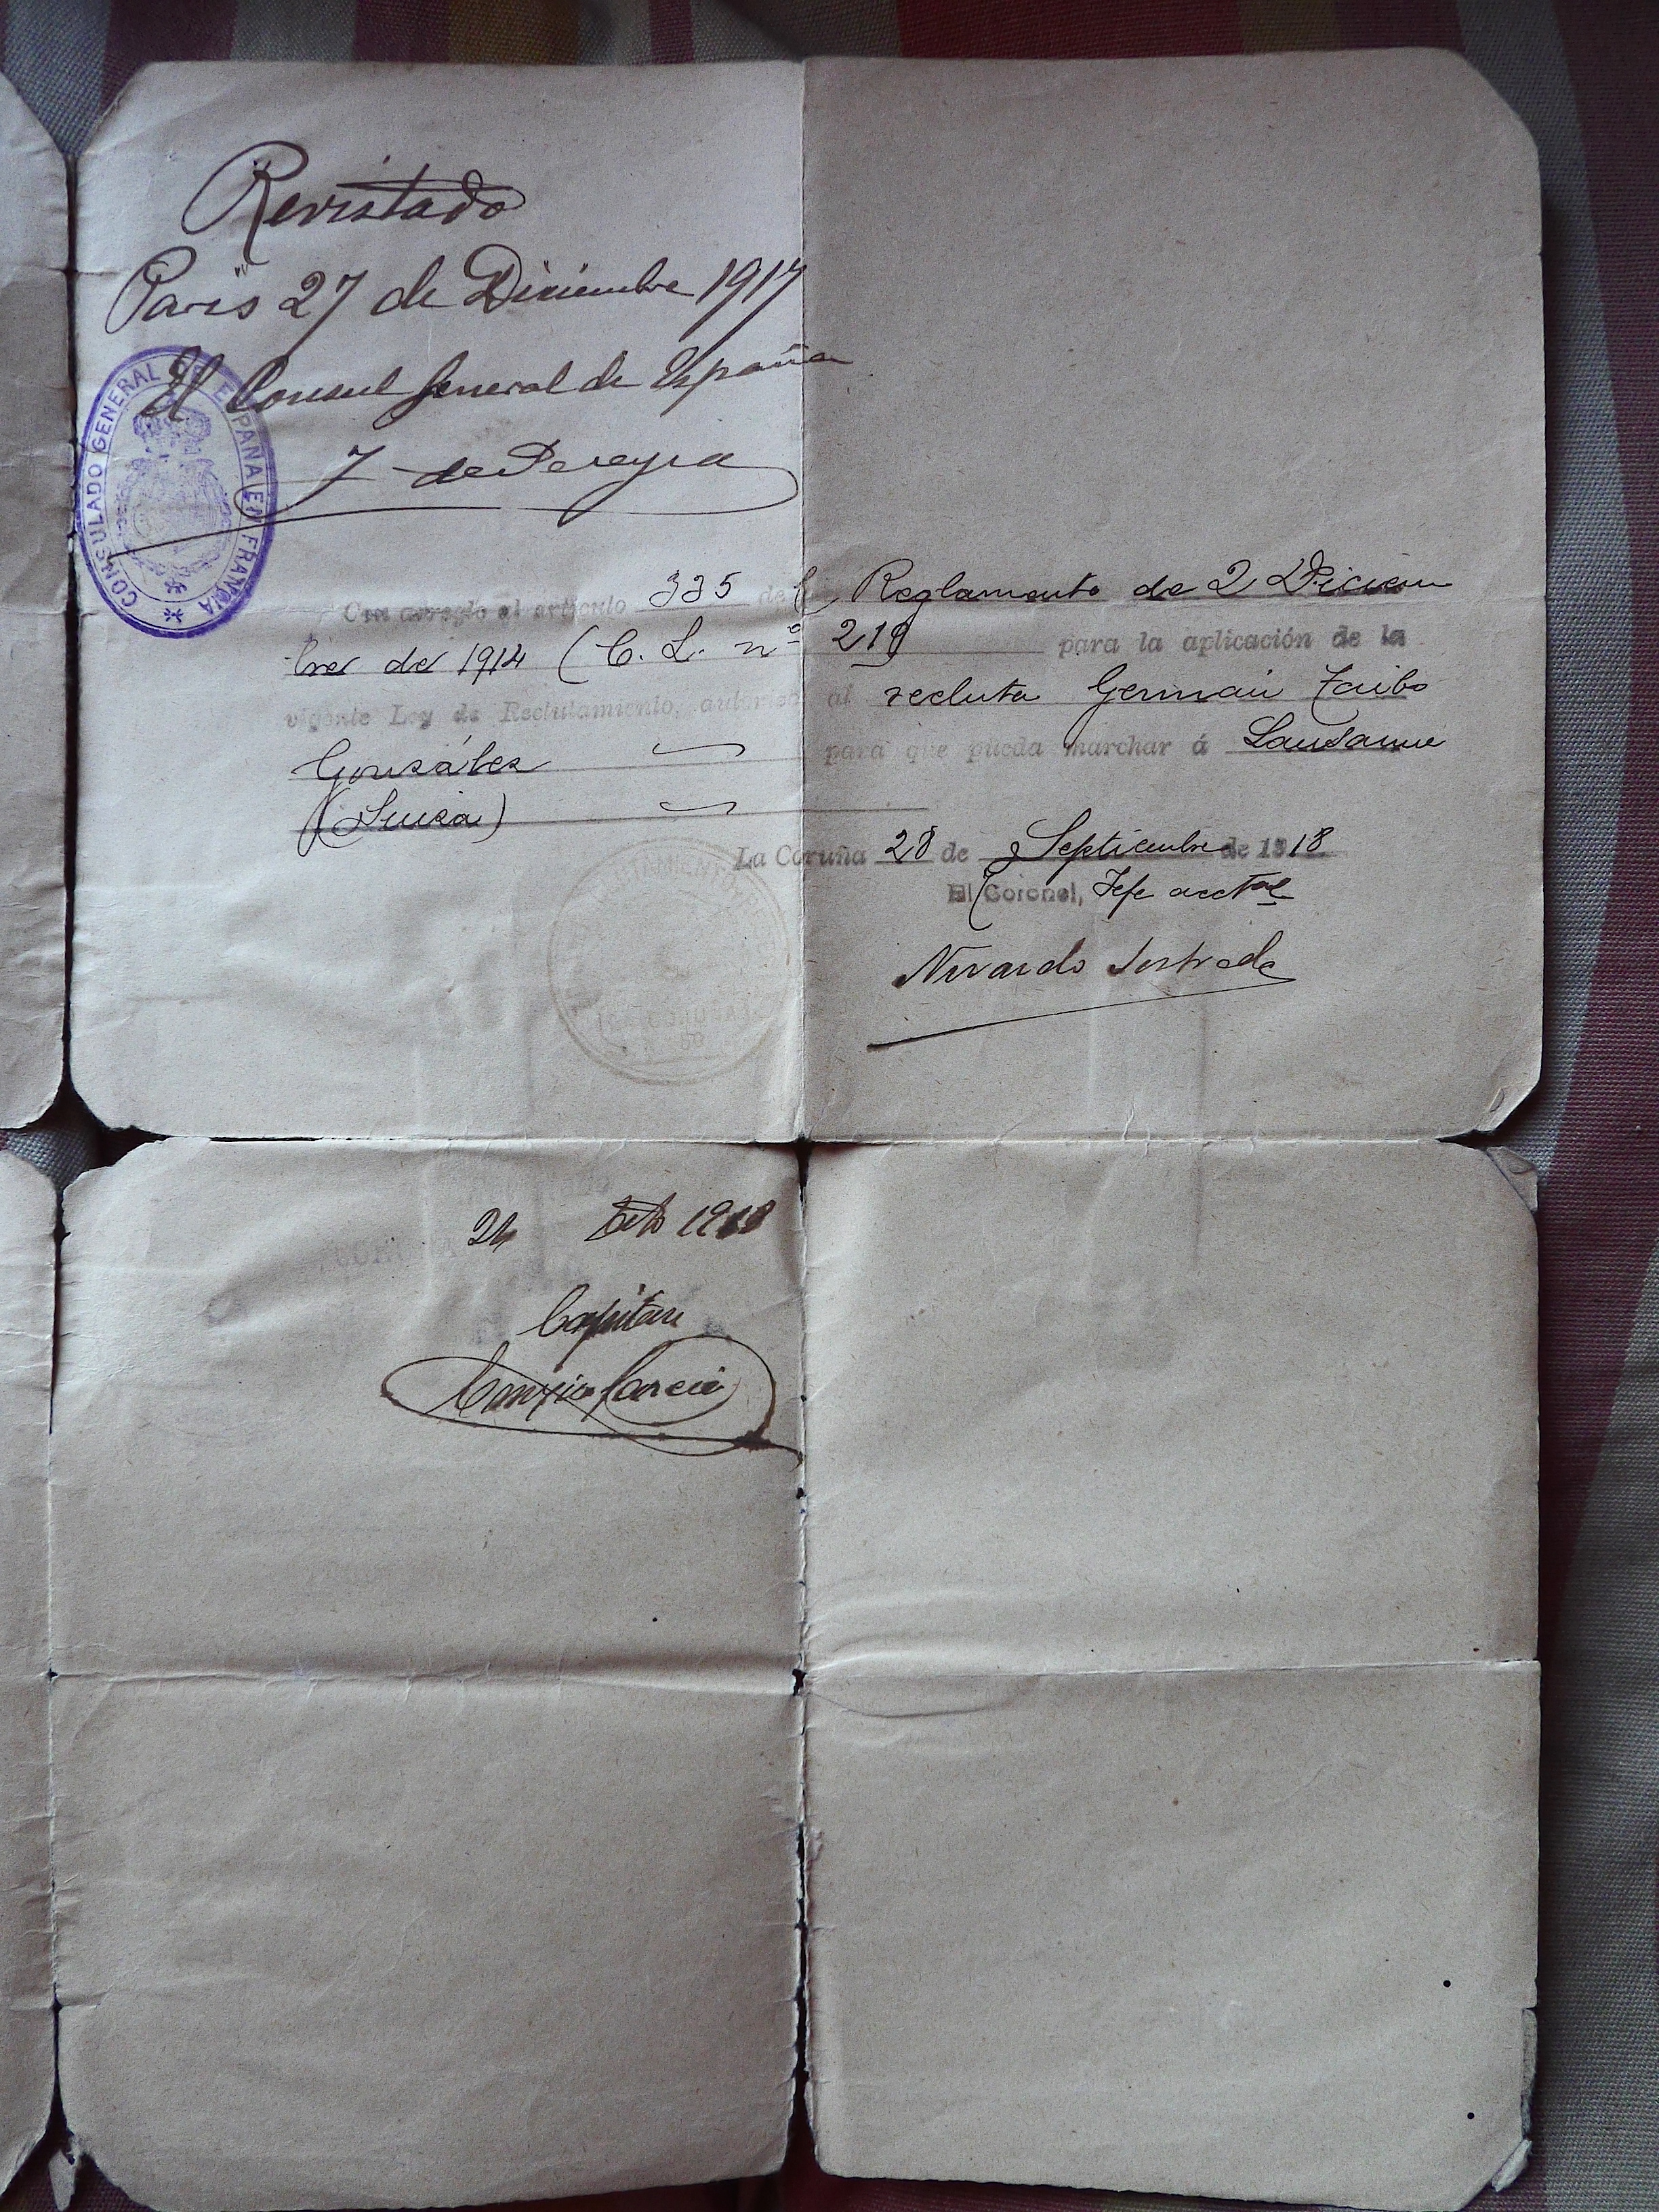 Revistado
Paris 27 de Diciembre 1917
El Consul General de España
J de Pereyra
CONSULADO GENERAL DE ESPAÑA EN FRANCIA
Con arreglo al artículo 335 del Reglamento de 2 Diciem
bre de 1914 (C. L. nº 219 para la aplicación de la
vigente Ley de Reclutamiento, autorizo al recluta German Taibo
González para que pueda marchar á Lausanne
(Suiza)
La Coruña 28 de Septiembre de 1918
El Coronel, Jefe acctal
24 1918
Capitan
García